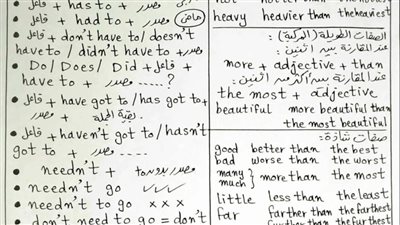 فاعل + has to + مصدر
فاعل + had to + مصدر (ماضي)
فاعل + don't have to / doesn't
have to / didn't have to + مصدر
Do / Does / Did + فاعل +
have to + مصدر .....?
فاعل + have got to / has got to +
مصدر + بقية الجملة
فاعل + haven't got to / hasn't
got to + مصدر .....
needn't + مصدر بدون to
needn't go ✓✓✓
needn't to go x x x
don't need to go = don't
hot hotter than the hottest
heavy heavier than the heaviest
الصفات الطويلة (المركبة):
عند المقارنة بين اثنين:
more + adjective + than
عند المقارنة بين أكثر من اثنين:
the most + adjective
beautiful more beautiful than
the most beautiful
صفات شاذة:
good better than the best
bad worse than the worst
many
much } more than the most
little less than the least
far farther than the farthest
further than the furthest